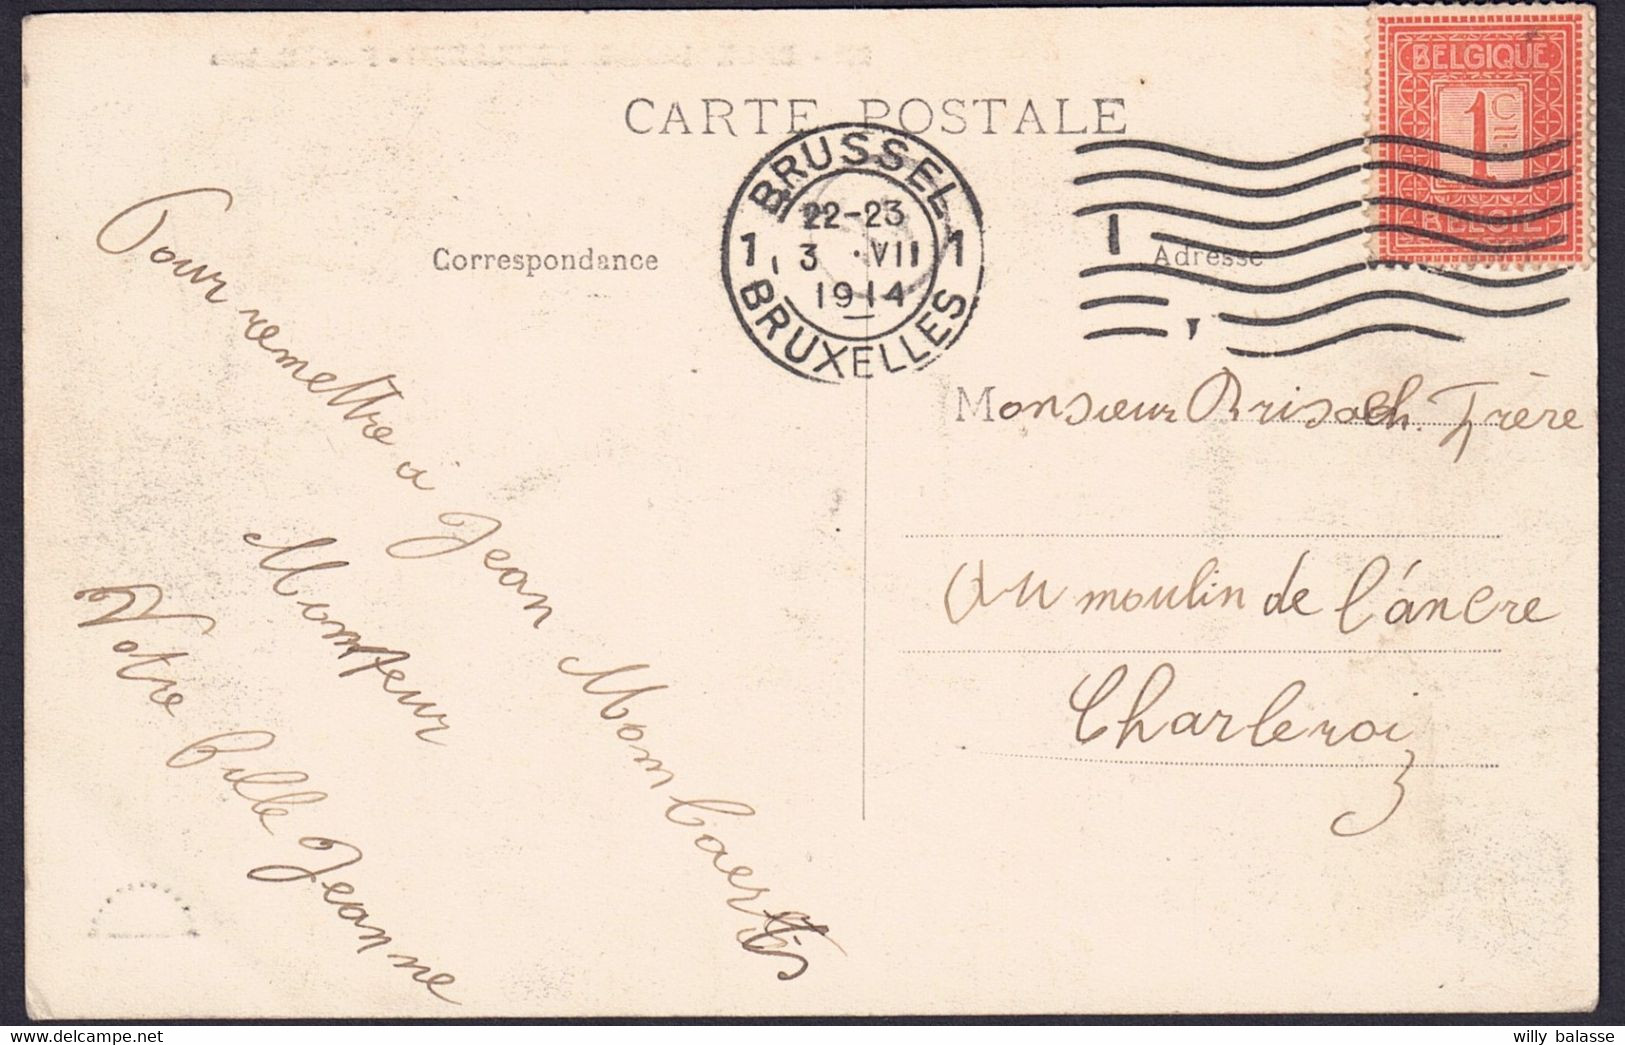 CARTE POSTALE
BELGIQUE
1 C
BELGIË
BRUSSEL
22-23
1 3 VII 1
1914
BRUXELLES
Correspondance
Adresse
Pour remettre à Jean Mombaerts
Monteur
Votre fille Jeanne
Monsieur Brisach. Frère
Au moulin de l'áncre
Charleroi
willy balasse